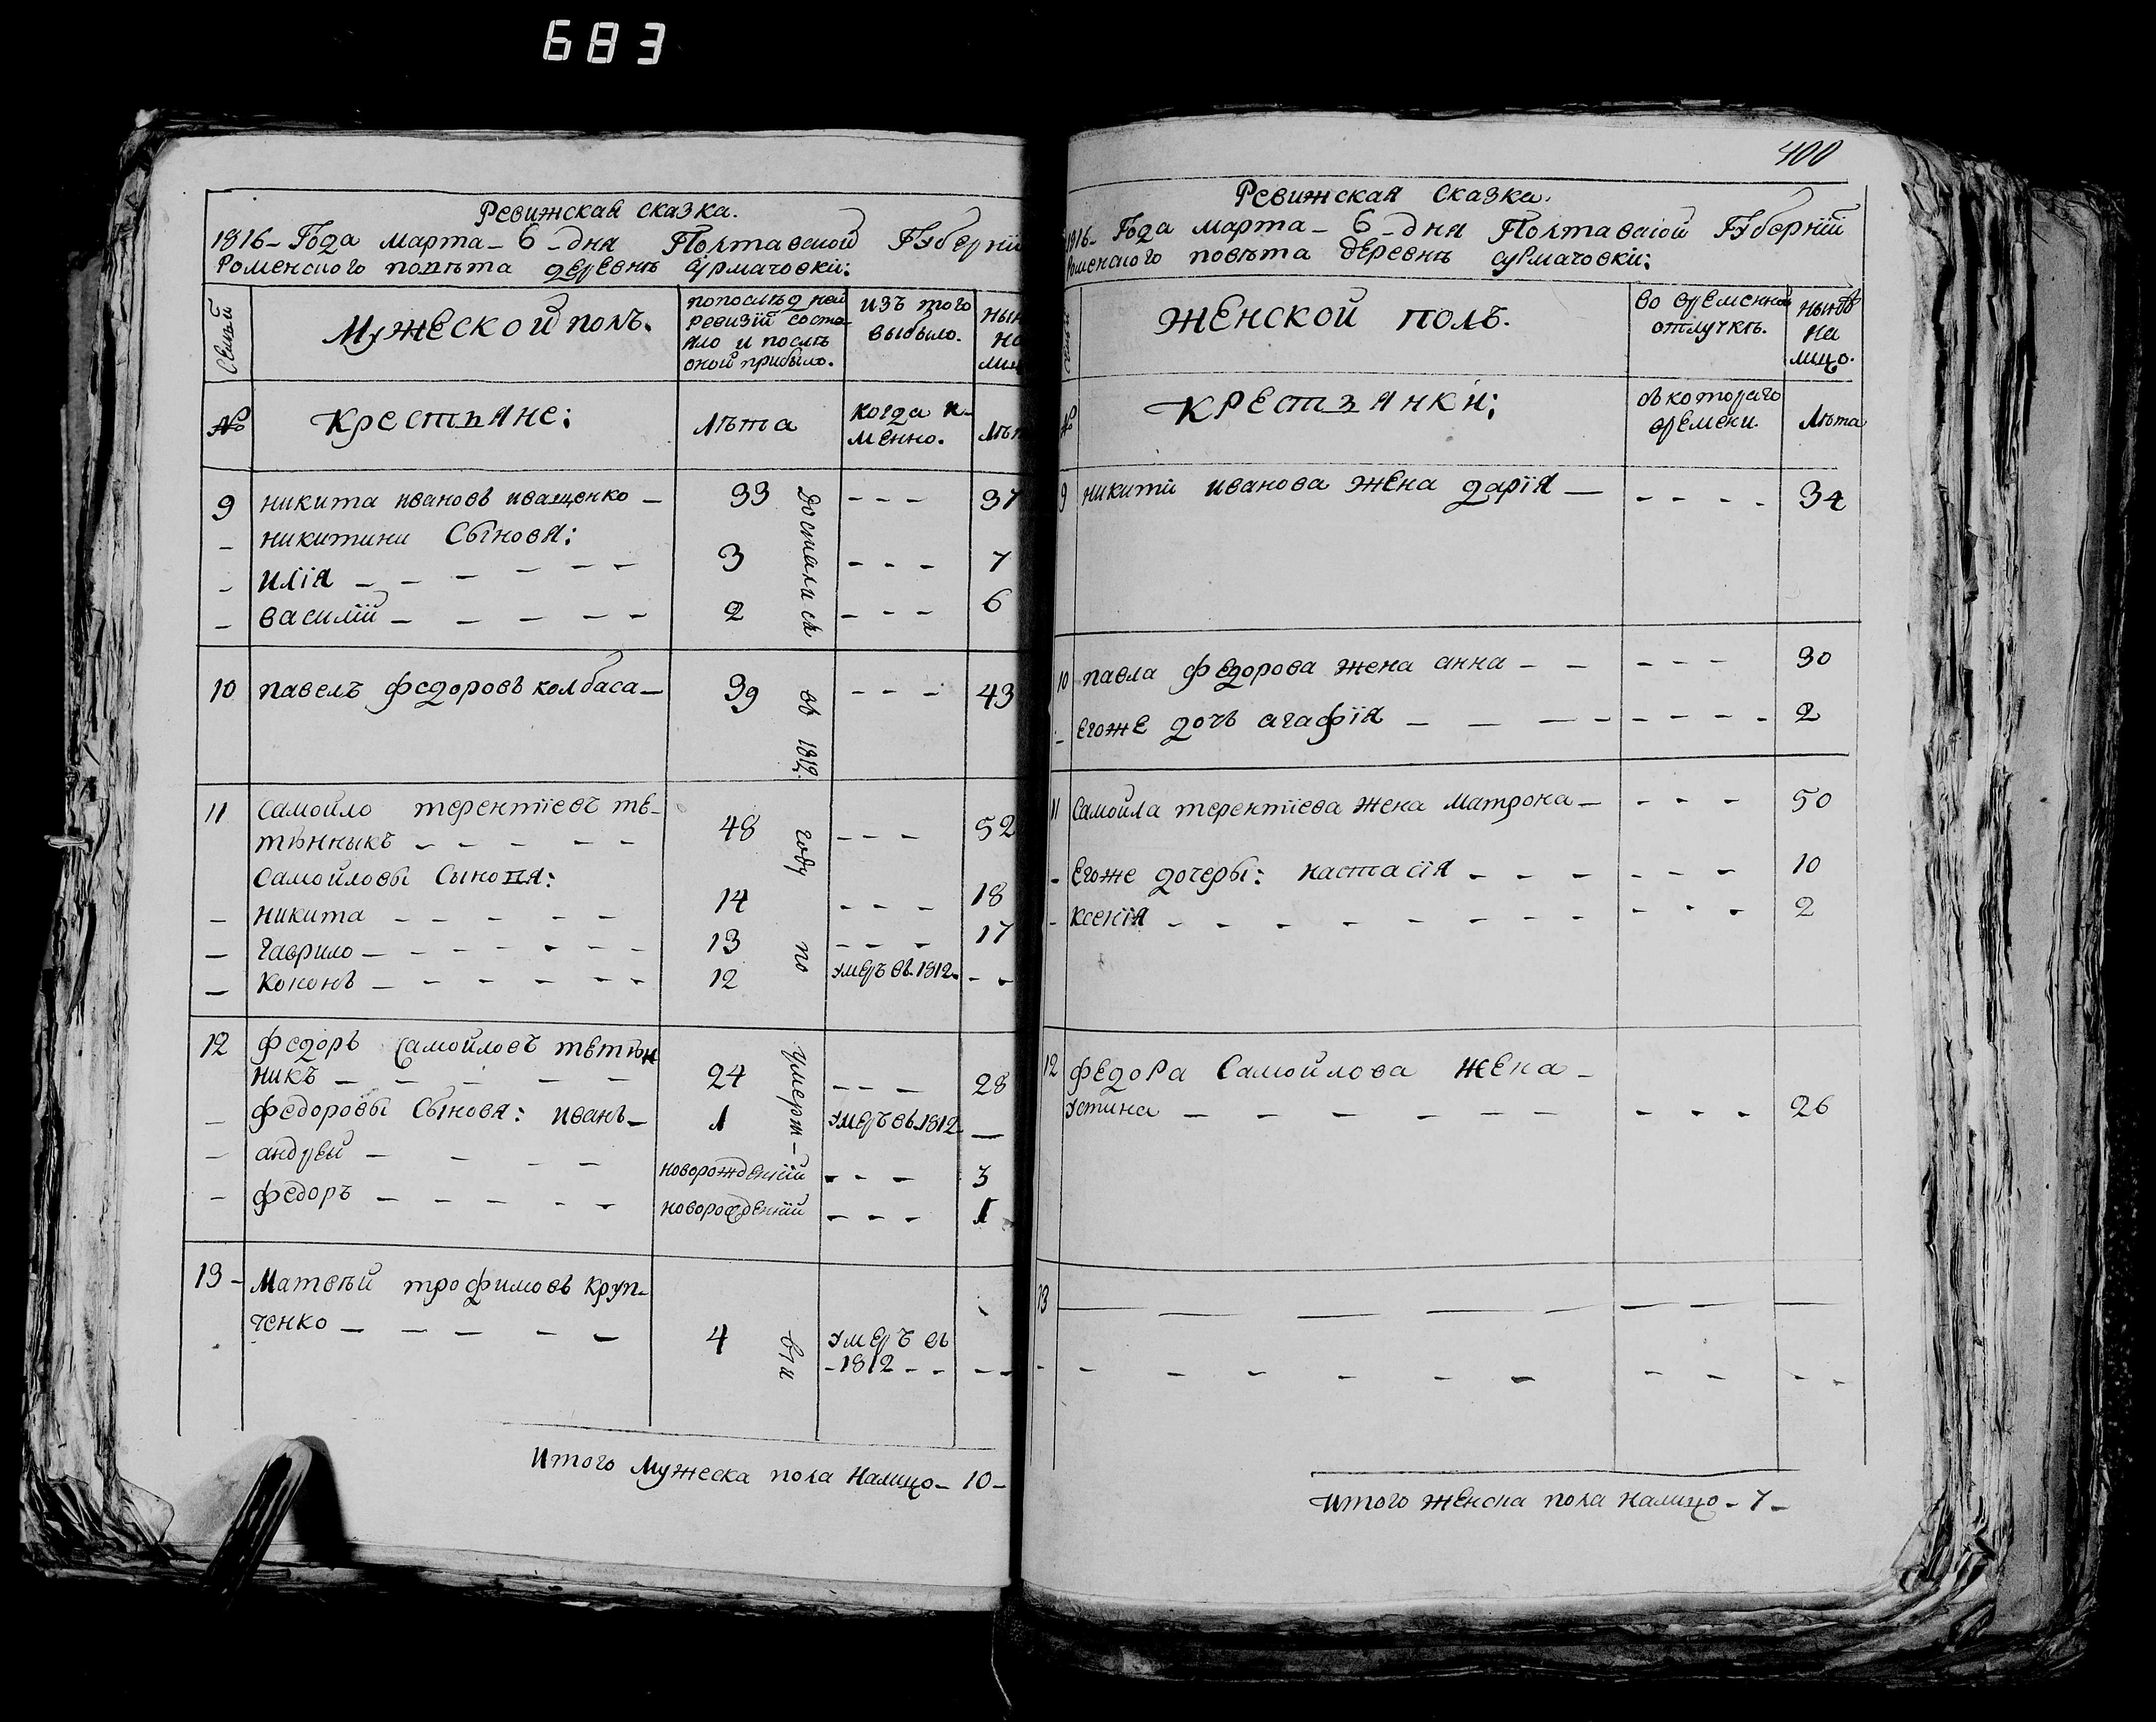 683
Ревижская сказка.
1816- Года марта- 6-дня Полтавской Губерніи
Роменского повѣта деревнѣ сурмачовки:
Семьи
Мужеской полъ.
попослѣдней
ревизіи состо-
яло и послѣ
оной прибыло.
изъ того
выбыло.
№
крестьяне:
лѣта
когда и-
менно.
9 никита ивановъ иващенко — 33 - - - 37
- никитини сынова:
- илія - - - - - - 3 - - - 7
- василій - - - - - - 2 - - - 6
10 павелъ федоровъ колбаса — 39 - - - 43
11 самойло терентіевъ тѣ-
тѣнныкъ - - - - - 48 - - - 52
самойловы сынова:
- никита - - - - - 14 - - - 18
- гаврило - - - - - - 13 - - - 17
- кононъ - - - - - - 12 умеръ въ 1812. - -
12 федоръ самойловъ тѣтѣн
никъ - - - - - 24 - - - 28
- федоровы сынова: иванъ - 1 умеръ въ 1812 —
- андрей - - - - новорожденій - - - 3
- федоръ - - - - - новорожденій - - - 1
13 - Матвѣй трофимовъ круп-
ченко - - - - - 4 умеръ въ
- 1812 - - - -
досталися
въ 1812
году
по
умерт-
вги
Итого мужеска пола налицо - 10 -
400
Ревижская сказка.
1816- Года марта- 6-дня Полтавской Губерніи
Роменского повѣта деревнѣ сурмачовки:
женской полъ.
во временной
отлучкѣ.
нынѣ
на
лицо.
№
крестьянки:
съ которого
времени.
лѣта
9 никити иванова жена дарія — - - - - 34
10 павла федорова жена анна - - - - - 30
- егоже дочь агафія - - - - - - - - - 2
11 самойла терентіева жена матрона — - - - 50
- егоже дочеры: настасія - - - - - - 10
- ксенія - - - - - - - - - - - 2
12 федора самойлова жена -
устина - - - - - - - - - 26
13 — — — — — — —
- - - - - - - - - - -
итого женска пола налицо - 7 -